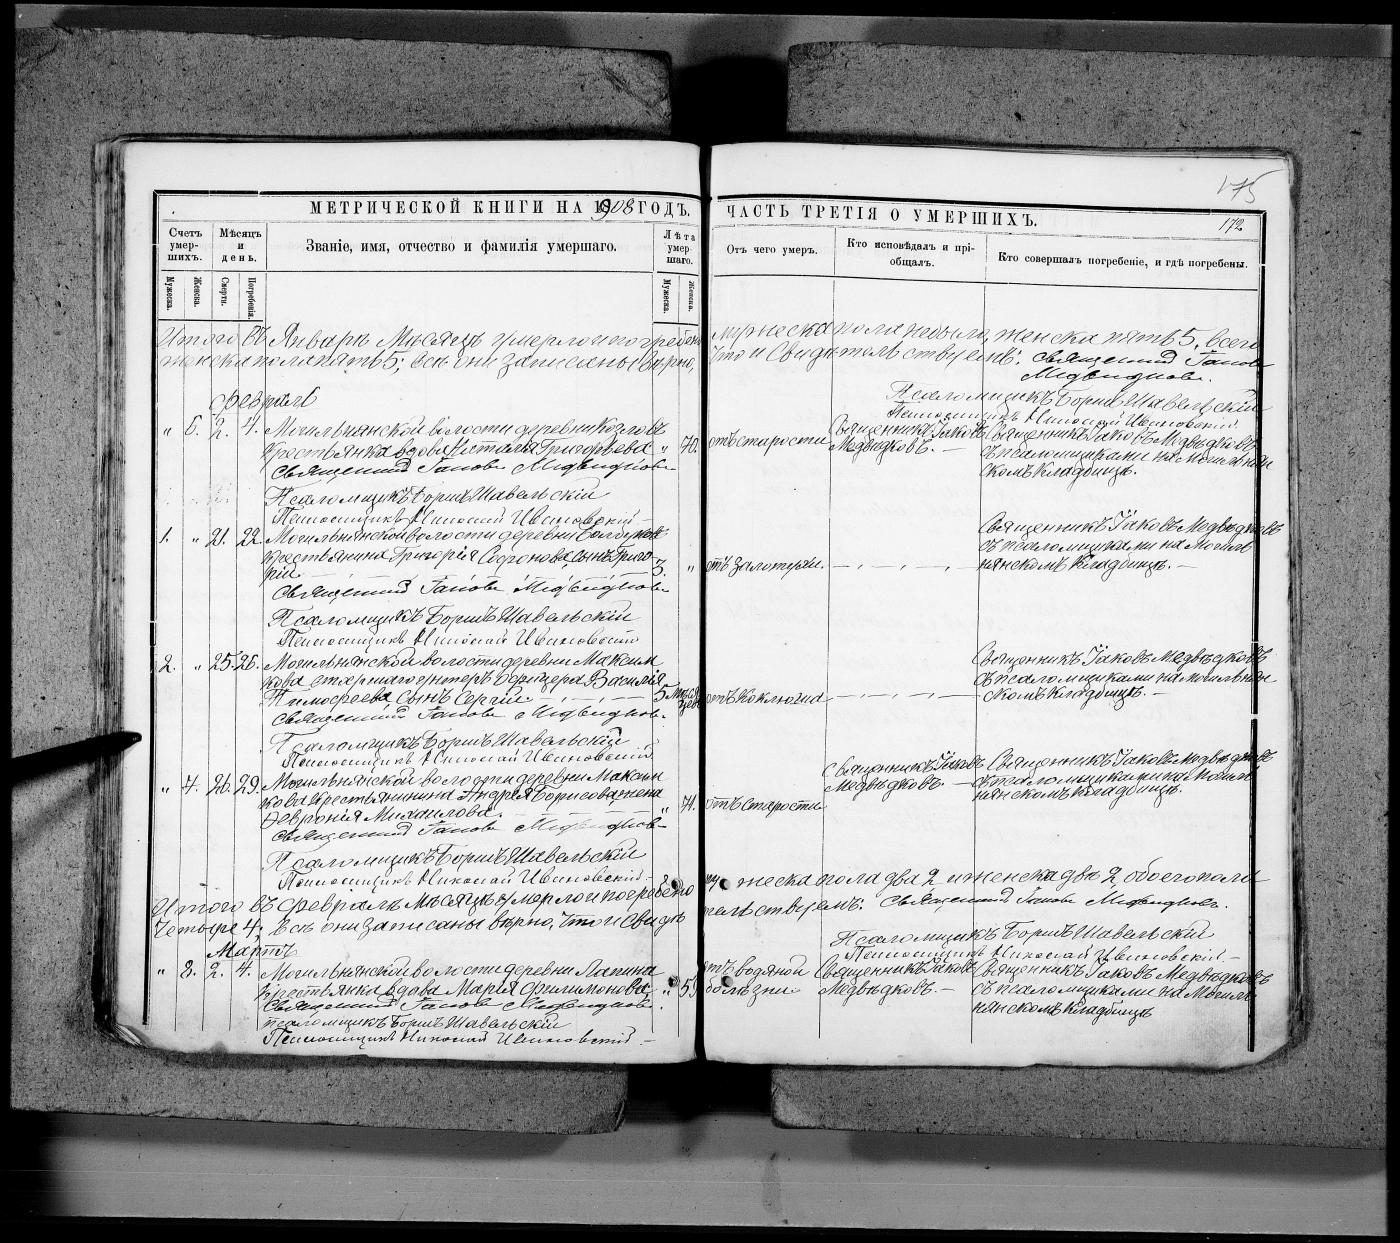 175
МЕТРИЧЕСКОЙ КНИГИ НА 1908 ГОДЪ.
ЧАСТЬ ТРЕТІЯ О УМЕРШИХЪ.
172
Счетъ умер-шихъ.
Мѣсяцъ и день.
Званіе, имя, отчество и фамилія умершаго.
Лѣта умер-шаго.
Отъ чего умеръ.
Кто исповѣдалъ и прі-общалъ.
Кто совершалъ погребеніе, и гдѣ погребены.
Мужеска.
Женска.
Смерти.
Погребенія.
Мужеска.
Женска.
Итого въ Январѣ мѣсяцѣ умерло и погребено мужеска пола небыло, женска пять 5, всего
женска пола пять 5; всѣ они записаны вѣрно, что и свидѣтельствуемъ: Священникъ Іаковъ
Медвѣдковъ.
Псаломщикъ Борисъ Шавельскій
Псаломщикъ Николай Ивановскій
Февраль
" 6. 2. 4. Могильнянской волости деревни Козловъ
крестьянка вдова Наталія Григорьева " 70.
отъ старости
Священникъ Іаковъ
Медвѣдковъ. —
Священникъ Іаковъ Медвѣдковъ
съ псаломщиками на Могильнян
скомъ кладбищѣ.
Священникъ Іаковъ Медвѣдковъ
Псаломщикъ Борисъ Шавельскій
Псаломщикъ Николай Ивановскій —
1. " 21. 22. Могильнянской волости деревни
крестьянина Григорія Софонова, сынъ Григо-
рій 3. "
отъ золотухи.
Священникъ Іаковъ Медвѣдковъ
съ псаломщиками на Могиль
нянскомъ кладбищѣ. —
Священникъ Іаковъ Медвѣдковъ
Псаломщикъ Борисъ Шавельскій
Псаломщикъ Николай Ивановскій
2. " 25. 26. Могильнянской волости деревни Максим
кова старшаго унтеръ офицера Василія
Тимофеева, сынъ Сергій. 5 мѣся
цевъ
отъ коклюша
Священникъ Іаковъ Медвѣдковъ
съ псаломщиками на Могильнян
скомъ кладбищѣ. —
Священникъ Іаковъ Медвѣдковъ.
Псаломщикъ Борисъ Шавельскій
Псаломщикъ Николай Ивановскій
" 7. 26. 29. Могильнянской волости деревни Максим
кова крестьянина Андрея Борисова, жена
Февронія Михаилова. " 71.
отъ старости
Священникъ Іаковъ
Медвѣдковъ. —
Священникъ Іаковъ Медвѣдковъ
съ псаломщиками на Могиль
нянскомъ кладбищѣ.
Священникъ Іаковъ Медвѣдковъ
Псаломщикъ Борисъ Шавельскій
Псаломщикъ Николай Ивановскій —
Итого въ Февралѣ мѣсяцѣ умерло и погребено мужеска пола два 2 и женска двѣ 2, обоего пола
четыре 4; всѣ они записаны вѣрно, что и свидѣтельствуемъ: Священникъ Іаковъ Медвѣдковъ.
Псаломщикъ Борисъ Шавельскій
Псаломщикъ Николай Ивановскій —
Мартъ
" 8. 2. 4. Могильнянской волости деревни Лапина
крестьянка вдова Марія Филимонова " 59
отъ водяной
болѣзни
Священникъ Іаковъ
Медвѣдковъ. —
Священникъ Іаковъ Медвѣдковъ
съ псаломщиками на Могиль
нянскомъ кладбищѣ
Священникъ Іаковъ Медвѣдковъ
Псаломщикъ Борисъ Шавельскій
Псаломщикъ Николай Ивановскій —